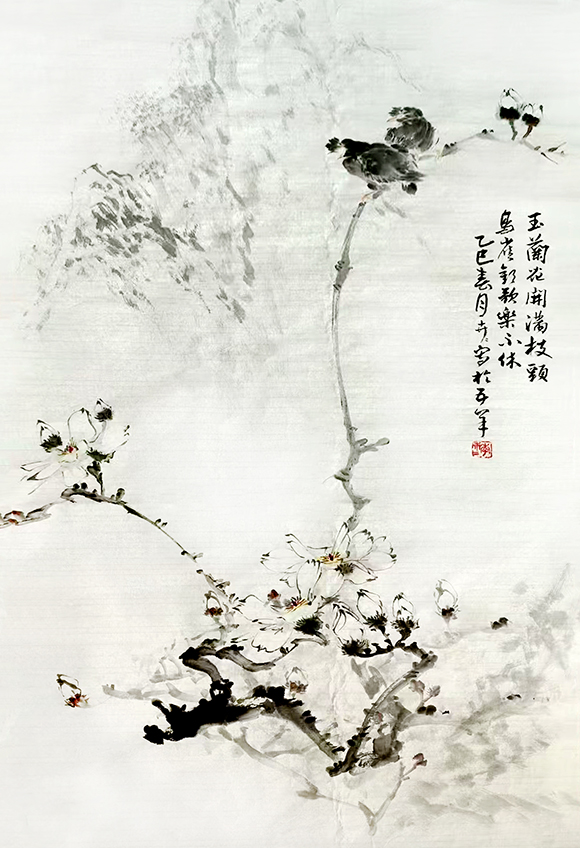 玉蘭花開滿枝頭
鳥雀歡歌樂不休
乙巳春月 寫於五羊